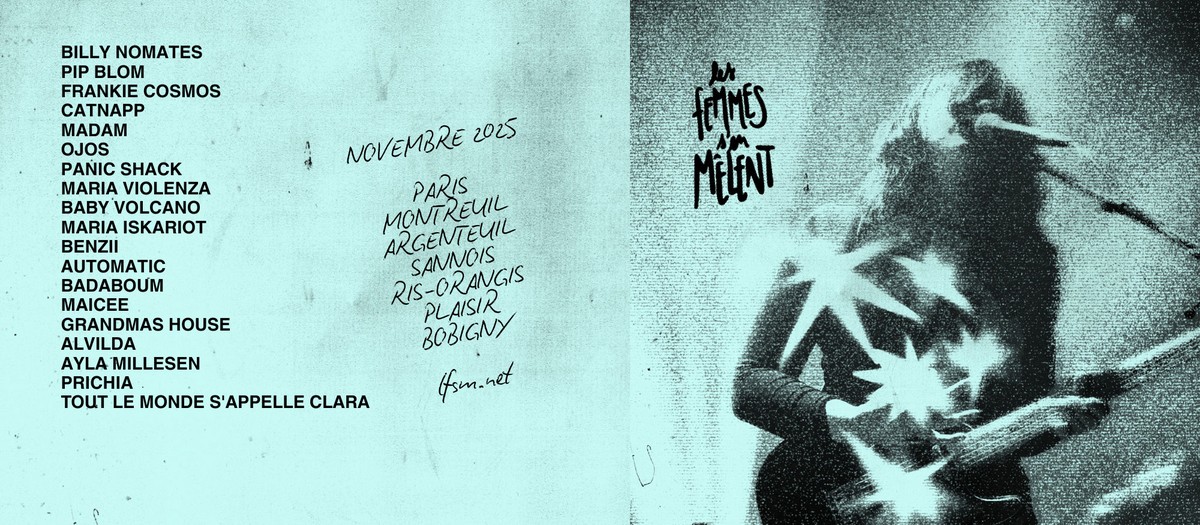 BILLY NOMATES
PIP BLOM
FRANKIE COSMOS
CATNAPP
MADAM
OJOS
PANIC SHACK
MARIA VIOLENZA
BABY VOLCANO
MARIA ISKARIOT
BENZII
AUTOMATIC
BADABOUM
MAICEE
GRANDMAS HOUSE
ALVILDA
AYLA MILLESEN
PRICHIA
TOUT LE MONDE S'APPELLE CLARA
NOVEMBRE 2025
PARIS
MONTREUIL
ARGENTEUIL
SANNOIS
RIS-ORANGIS
PLAISIR
BOBIGNY
lfsm.net
les
FEMMES
s'en
MÊLENT